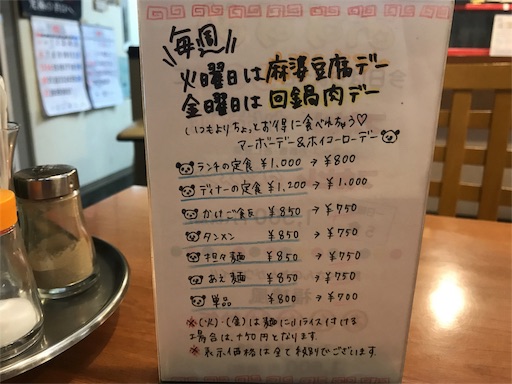 毎週
火曜日は麻婆豆腐デー
金曜日は回鍋肉デー
いつもよりちょっとお得に食べれちゃう♡
マーボーデー&ホイコーローデー
ランチの定食 ¥1,000 → ¥800
ディナーの定食 ¥1,200 → ¥1,000
かけご食豆 ¥850 → ¥750
タンメン ¥850 → ¥750
担々麺 ¥850 → ¥750
あえ麺 ¥850 → ¥750
単品 ¥800 → ¥700
※(火)・(金)は麺に小ライス付ける
場合は、+50円となります
※表示価格は全て税別でございます。